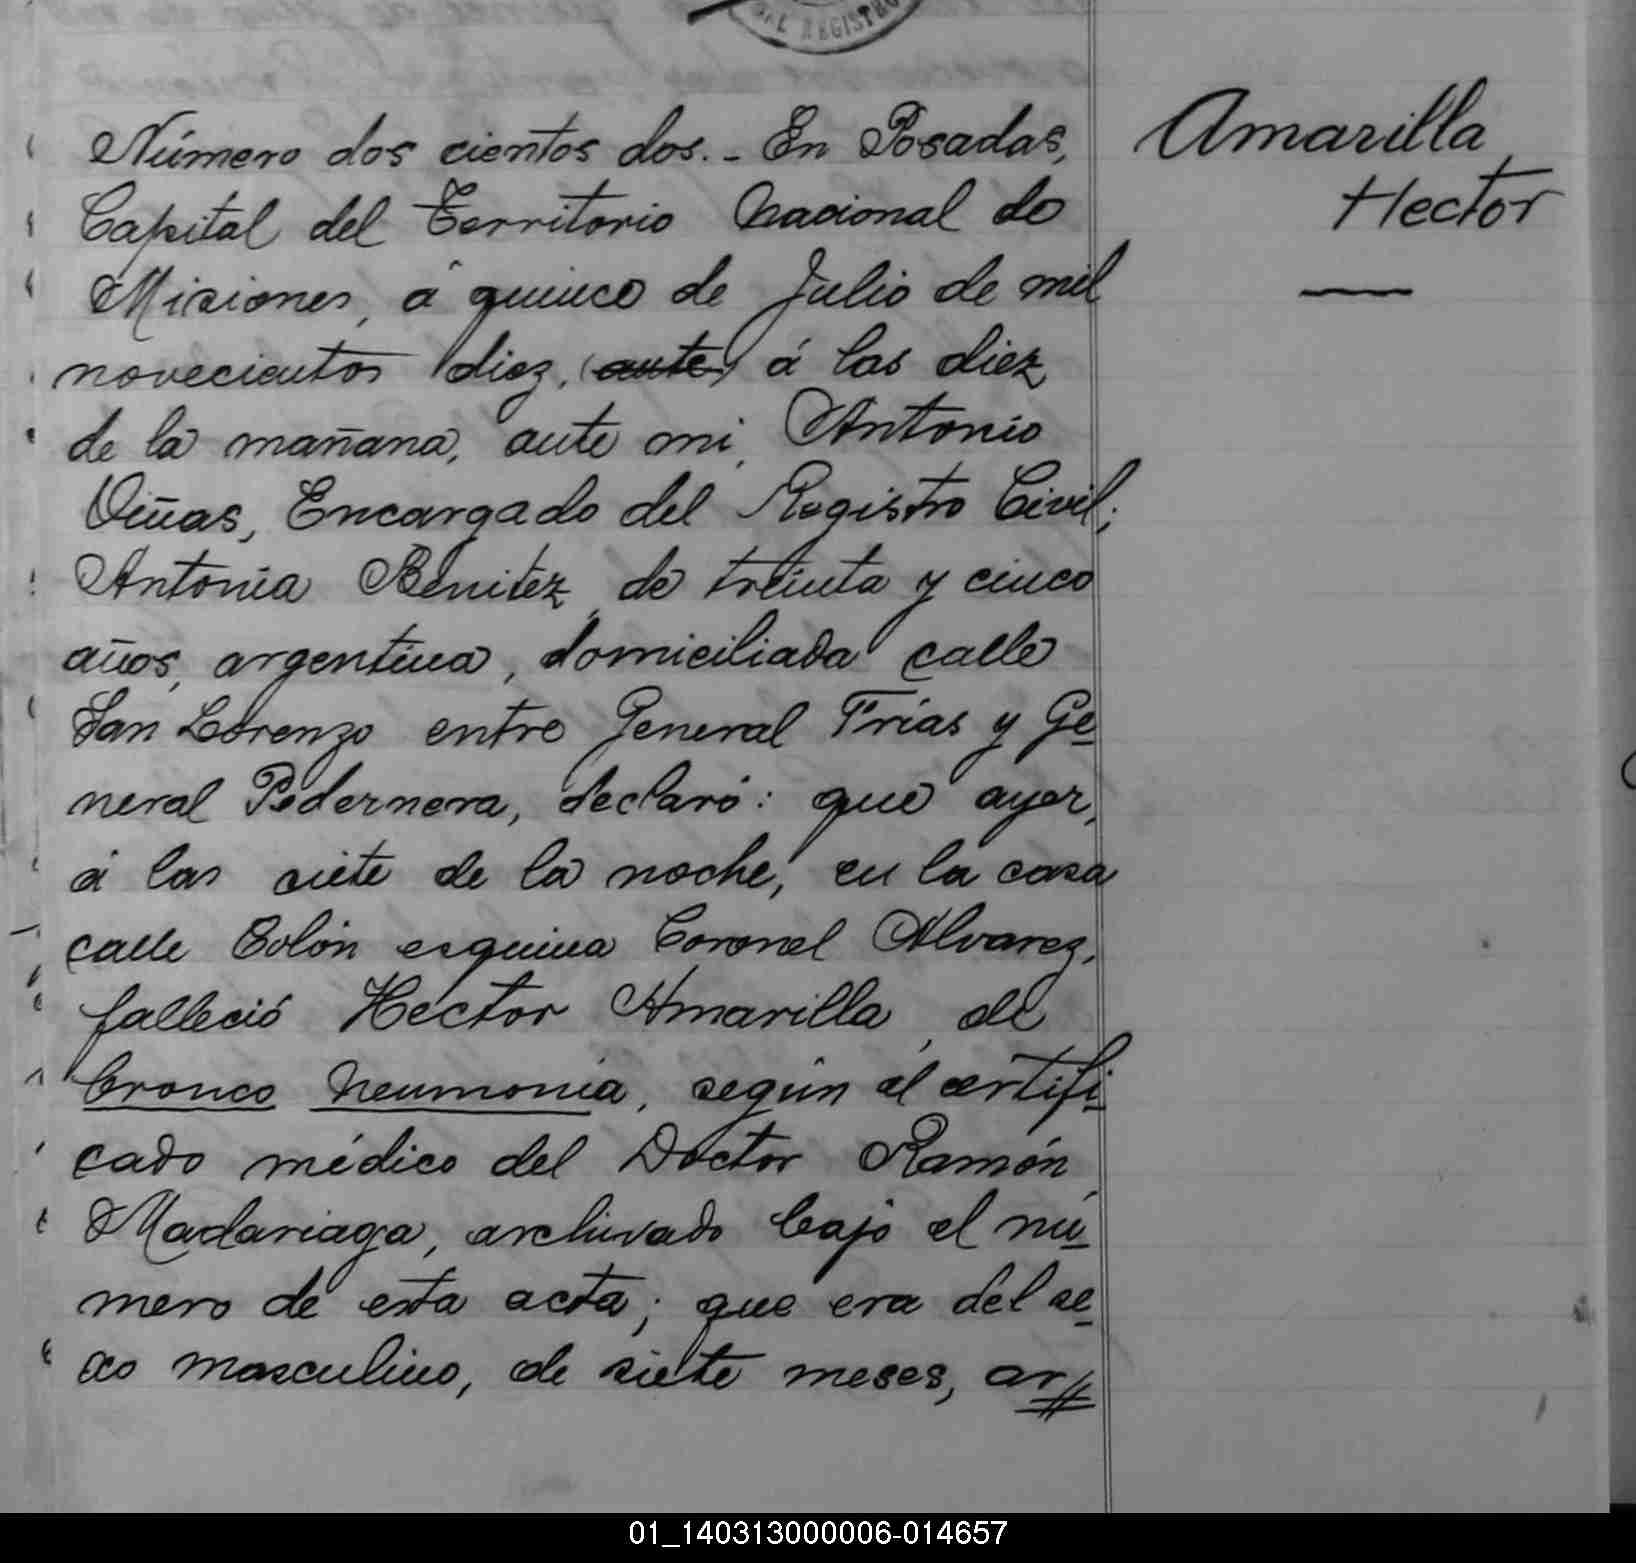 DEL REGISTRO
Número dos cientos dos. - En Posadas,
Capital del Territorio Nacional de
Misiones, á quince de Julio de mil
novecientos diez, (ante) á las diez
de la mañana, ante mi, Antonio
Viñas, Encargado del Registro Civil;
Antonia Benitez, de treinta y cinco
años, argentina, domiciliada calle
San Lorenzo entre General Frías y Ge-
neral Pedernera, declaró: que ayer,
á las siete de la noche, en la casa
calle Colón esquina Coronel Alvarez,
falleció Hector Amarilla, de
bronco neumonia, según el certifi-
cado médico del Doctor Ramón
Madariaga, archivado bajo el nú-
mero de esta acta; que era del se-
xo masculino, de siete meses, ar//
Amarilla
Hector
01_140313000006-014657